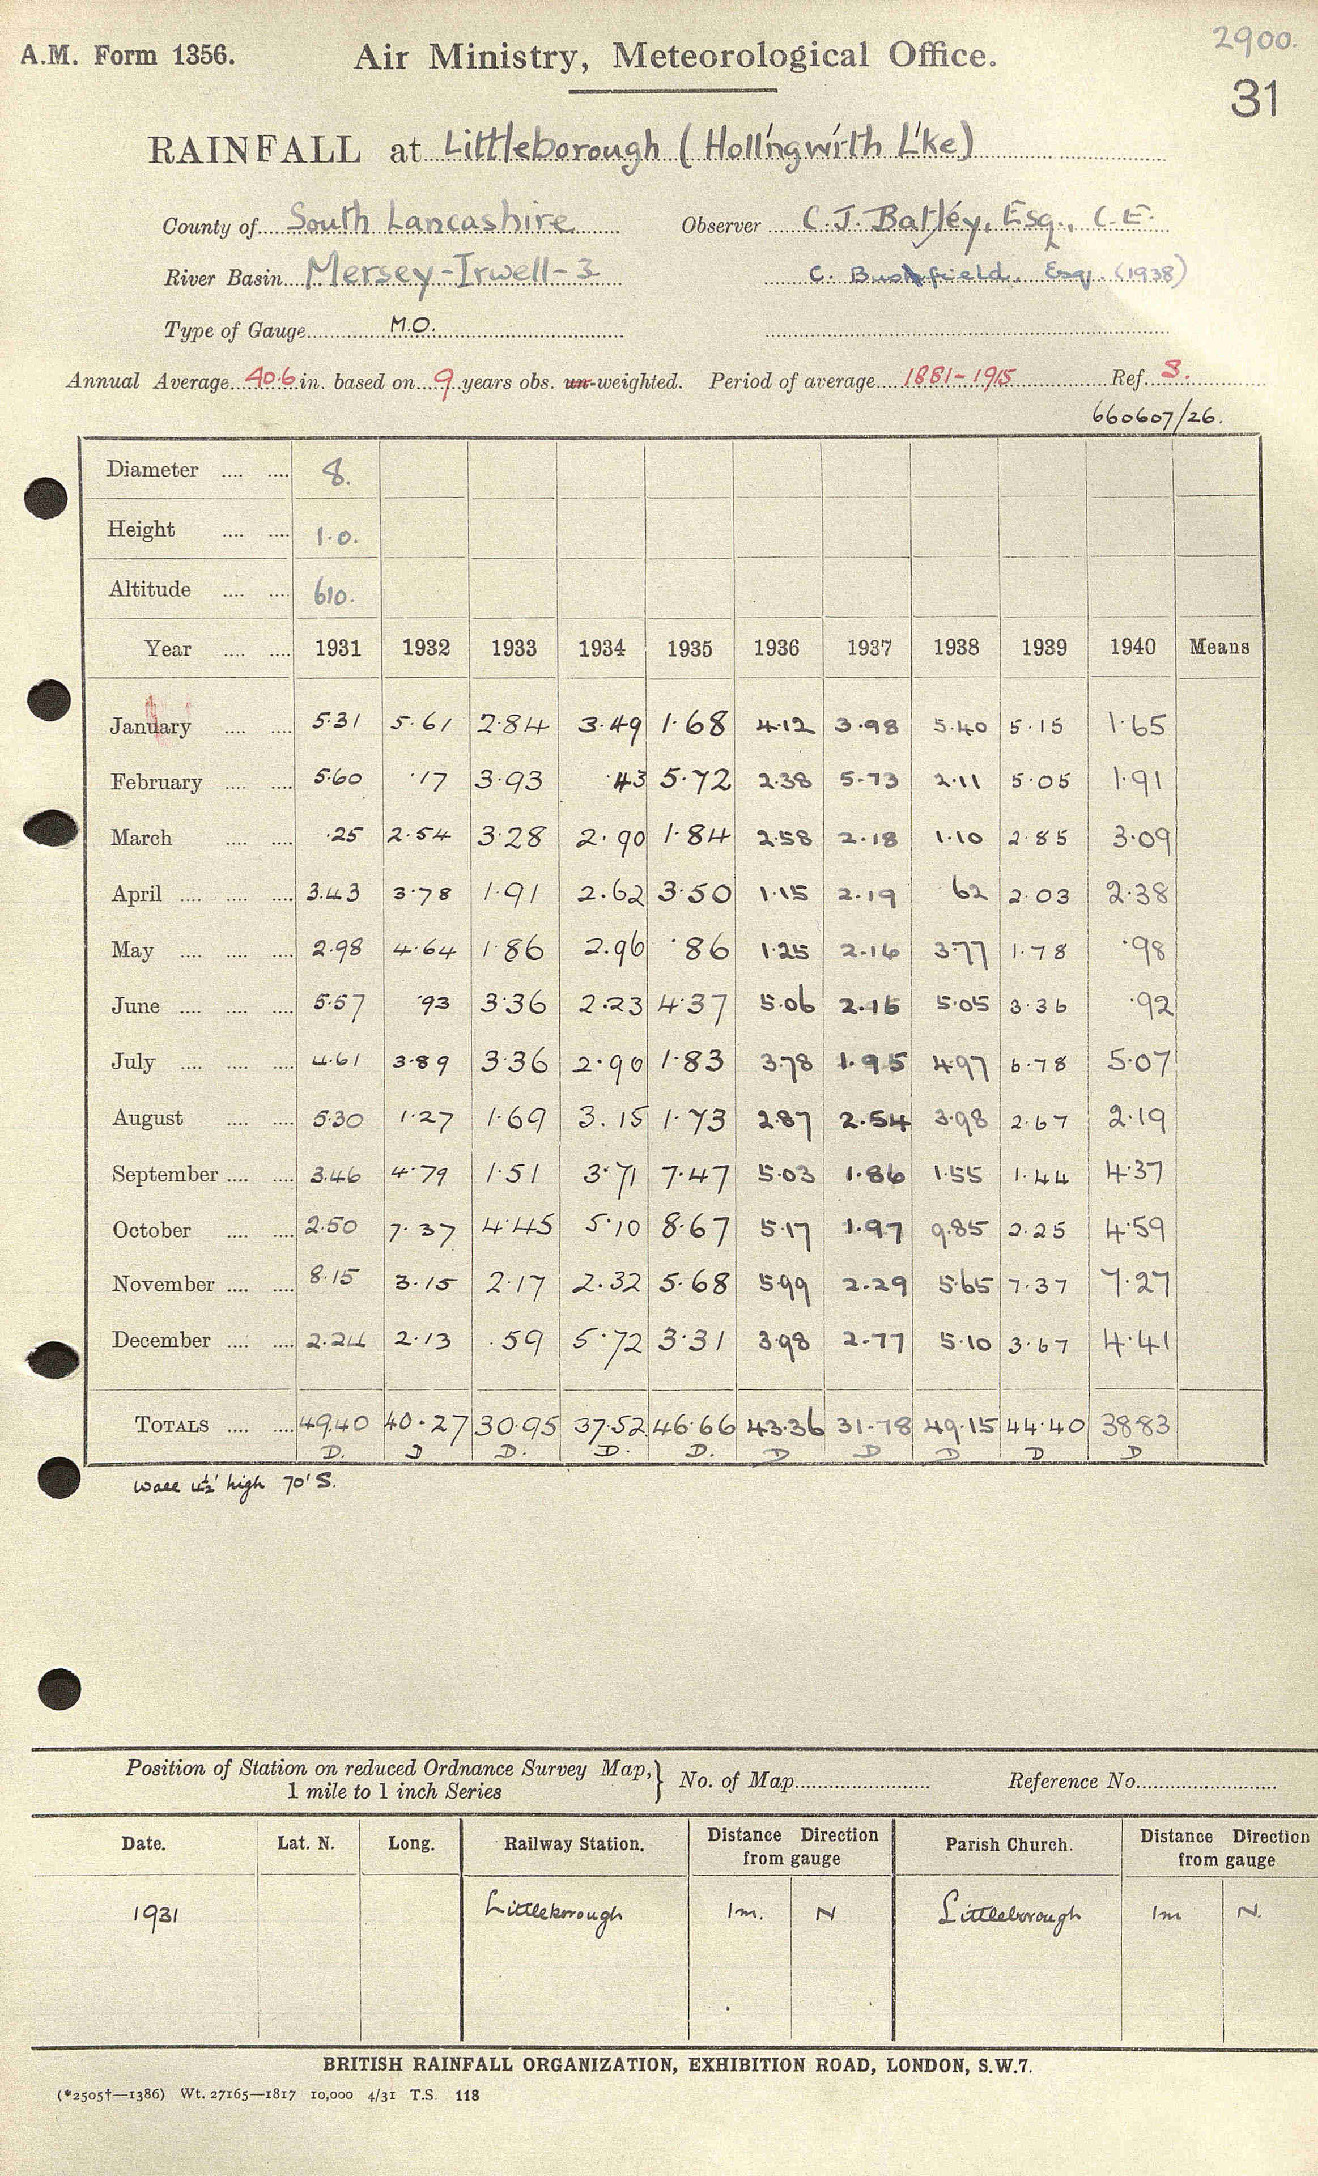 2900.
A.M. Form 1356. Air Ministry, Meteorological Office.
31
RAINFALL at Littleborough (Hollingwirth L'ke)
County of South Lancashire Observer C. J. Batley, Esq., C.E.
River Basin Mersey-Irwell-3 C. Bushfield, Esq. (1938)
Type of Gauge M.O.
Annual Average 40.6 in. based on 9 years obs. un-weighted. Period of average 1881-1915 Ref. S.
660607/26.
Diameter .... .... 8.
Height .... .... 1.0.
Altitude .... .... 610.
Year .... .... 1931 1932 1933 1934 1935 1936 1937 1938 1939 1940 Means
January .... .... 5.31 5.61 2.84 3.49 1.68 4.12 3.98 5.40 5.15 1.65
February .... .... 5.60 .17 3.93 .43 5.72 2.38 5.73 2.11 5.05 1.91
March .... .... .25 2.54 3.28 2.90 1.84 2.58 2.18 1.10 2.85 3.09
April .... .... .... 3.43 3.78 1.91 2.62 3.50 1.15 2.19 62 2.03 2.38
May .... .... .... 2.98 4.64 1.86 2.96 .86 1.25 2.16 3.77 1.78 .98
June .... .... .... 5.57 .93 3.36 2.23 4.37 5.06 2.16 5.05 3.36 .92
July .... .... .... 4.61 3.89 3.36 2.90 1.83 3.78 1.95 4.97 6.78 5.07
August .... .... 5.30 1.27 1.69 3.15 1.73 2.87 2.54 3.98 2.67 2.19
September .... .... 3.46 4.79 1.51 3.71 7.47 5.03 1.86 1.55 1.44 4.37
October .... .... 2.50 7.37 4.45 5.10 8.67 5.17 1.97 9.85 2.25 4.59
November .... .... 8.15 3.15 2.17 2.32 5.68 5.99 2.29 5.65 7.37 7.27
December .... .... 2.24 2.13 .59 5.72 3.31 3.98 2.77 5.10 3.67 4.41
TOTALS .... .... 49.40 40.27 30.95 37.52 46.66 43.36 31.78 49.15 44.40 38.83
D. D D. D. D. D D D D D
Wall 4½' high 70' S.
Position of Station on reduced Ordnance Survey Map,} No. of Map Reference No.
1 mile to 1 inch Series
Date. Lat. N. Long. Railway Station. Distance Direction from gauge Parish Church. Distance Direction from gauge
1931 Littleborough 1m. N Littleborough 1m N.
BRITISH RAINFALL ORGANIZATION, EXHIBITION ROAD, LONDON, S.W.7.
(*2505†—1386) Wt. 27165—1817 10,000 4/31 T.S. 118